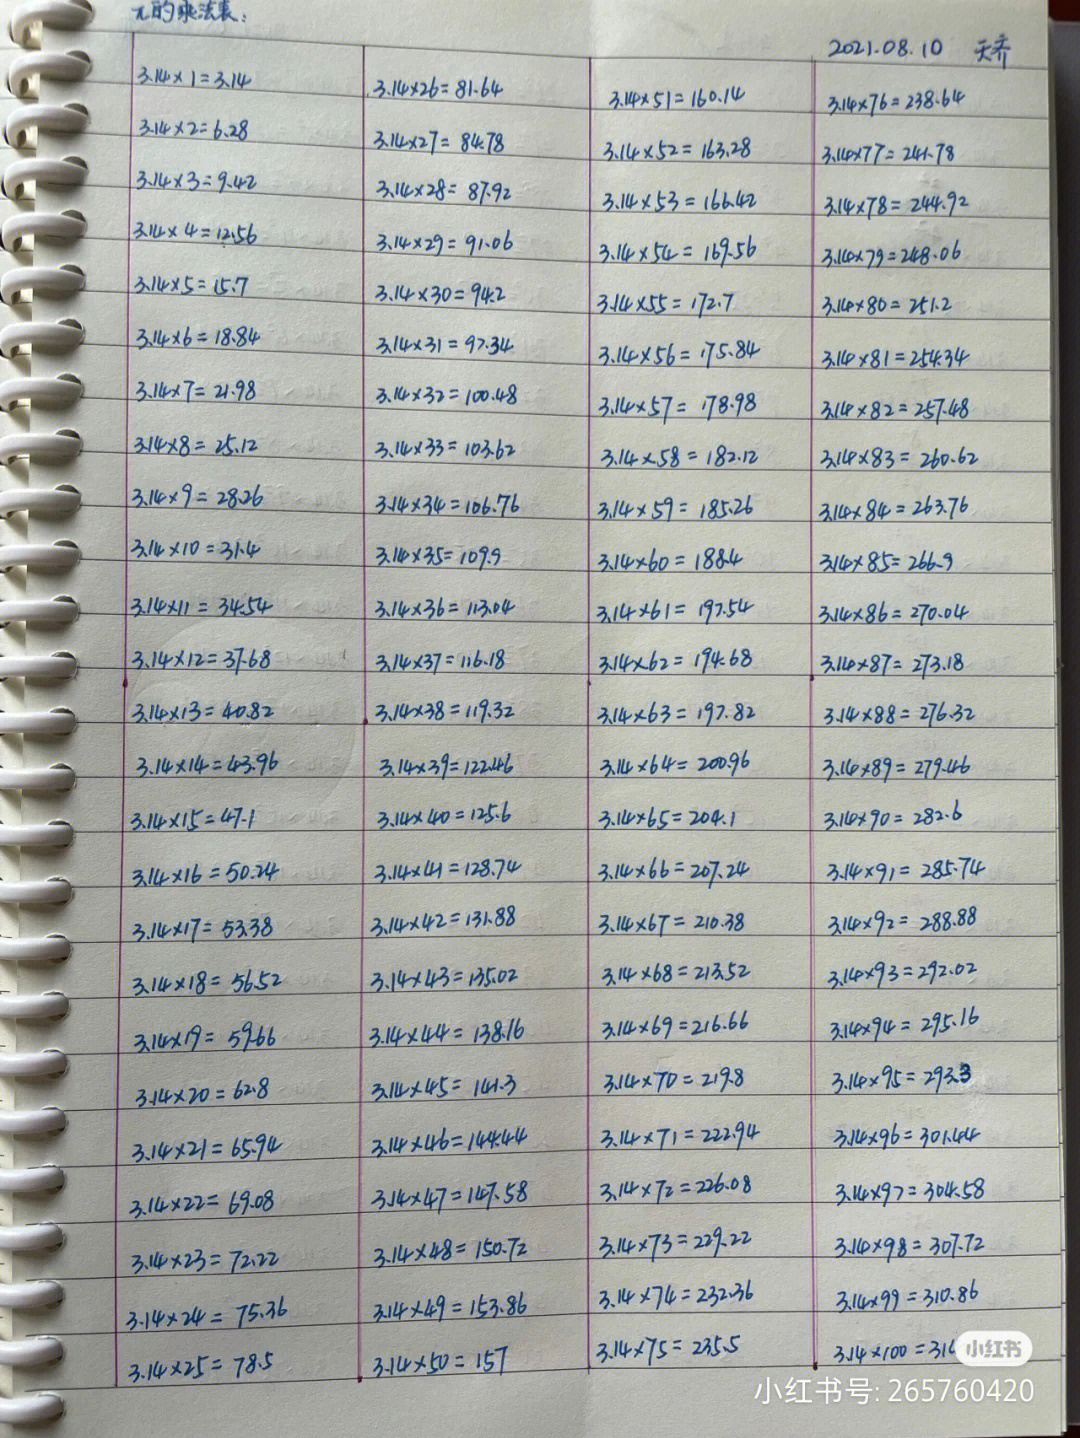 π的乘法表:
2021.08.10 天齐
3.14×1=3.14
3.14×2=6.28
3.14×3=9.42
3.14×4=12.56
3.14×5=15.7
3.14×6=18.84
3.14×7=21.98
3.14×8=25.12
3.14×9=28.26
3.14×10=31.4
3.14×11=34.54
3.14×12=37.68
3.14×13=40.82
3.14×14=43.96
3.14×15=47.1
3.14×16=50.24
3.14×17=53.38
3.14×18=56.52
3.14×19=59.66
3.14×20=62.8
3.14×21=65.94
3.14×22=69.08
3.14×23=72.22
3.14×24=75.36
3.14×25=78.5
3.14×26=81.64
3.14×27=84.78
3.14×28=87.92
3.14×29=91.06
3.14×30=94.2
3.14×31=97.34
3.14×32=100.48
3.14×33=103.62
3.14×34=106.76
3.14×35=109.9
3.14×36=113.04
3.14×37=116.18
3.14×38=119.32
3.14×39=122.46
3.14×40=125.6
3.14×41=128.74
3.14×42=131.88
3.14×43=135.02
3.14×44=138.16
3.14×45=141.3
3.14×46=144.44
3.14×47=147.58
3.14×48=150.72
3.14×49=153.86
3.14×50=157
3.14×51=160.14
3.14×52=163.28
3.14×53=166.42
3.14×54=169.56
3.14×55=172.7
3.14×56=175.84
3.14×57=178.98
3.14×58=182.12
3.14×59=185.26
3.14×60=188.4
3.14×61=197.54
3.14×62=194.68
3.14×63=197.82
3.14×64=200.96
3.14×65=204.1
3.14×66=207.24
3.14×67=210.38
3.14×68=213.52
3.14×69=216.66
3.14×70=219.8
3.14×71=222.94
3.14×72=226.08
3.14×73=229.22
3.14×74=232.36
3.14×75=235.5
3.14×76=238.64
3.14×77=241.78
3.14×78=244.92
3.14×79=248.06
3.14×80=251.2
3.14×81=254.34
3.14×82=257.48
3.14×83=260.62
3.14×84=263.76
3.14×85=266.9
3.14×86=270.04
3.14×87=273.18
3.14×88=276.32
3.14×89=279.46
3.14×90=282.6
3.14×91=285.74
3.14×92=288.88
3.14×93=292.02
3.14×94=295.16
3.14×95=293.3
3.14×96=301.44
3.14×97=304.58
3.14×98=307.72
3.14×99=310.86
3.14×100=314
小红书
小红书号: 265760420